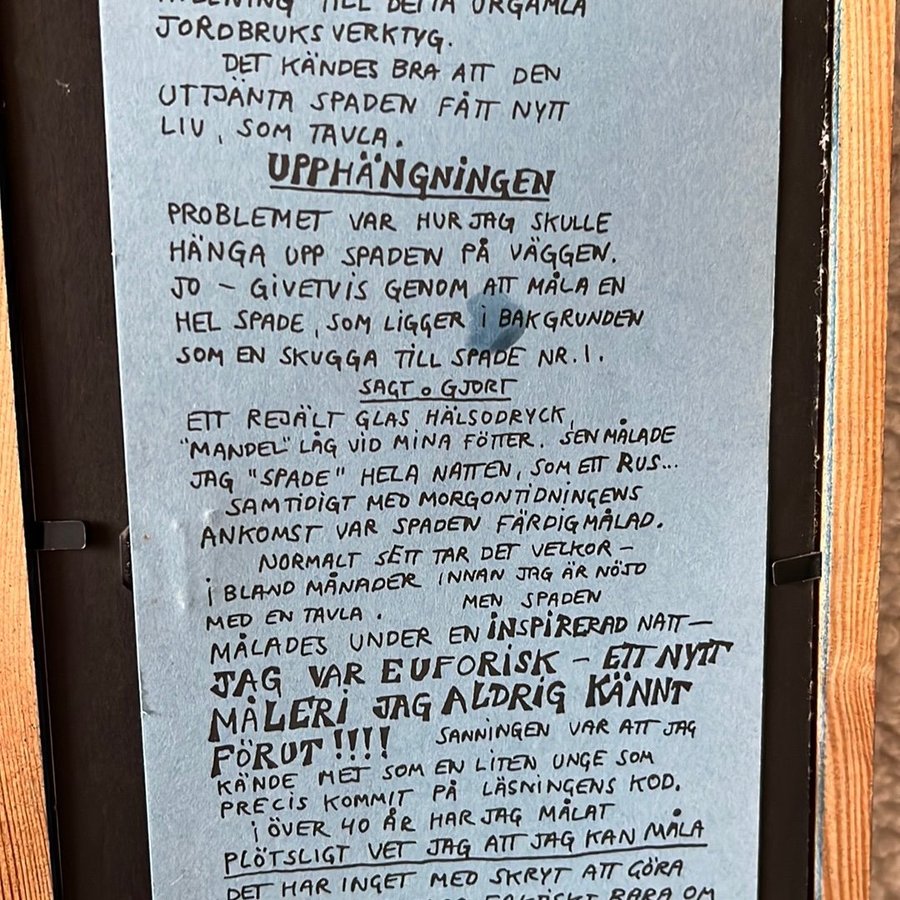 TILL DETTA URGAMLA
JORDBRUKSVERKTYG.
DET KÄNDES BRA ATT DEN
UTTJÄNTA SPADEN FÅTT NYTT
LIV, SOM TAVLA.
UPPHÄNGNINGEN
PROBLEMET VAR HUR JAG SKULLE
HÄNGA UPP SPADEN PÅ VÄGGEN.
JO – GIVETVIS GENOM ATT MÅLA EN
HEL SPADE, SOM LIGGER i BAKGRUNDEN
SOM EN SKUGGA TILL SPADE NR.1.
SAGT o GJORT
ETT REJÄLT GLAS HÄLSODRYCK,
"MANDEL" LÅG VID MINA FÖTTER. SEN MÅLADE
JAG "SPADE" HELA NATTEN, SOM ETT RUS...
SAMTIDIGT MED MORGONTIDNINGENS
ANKOMST VAR SPADEN FÄRDIGMÅLAD.
NORMALT SETT TAR DET VECKOR –
i BLAND MÅNADER INNAN JAG ÄR NÖJD
MED EN TAVLA. MEN SPADEN
MÅLADES UNDER EN INSPIRERAD NATT –
JAG VAR EUFORISK – ETT NYTT
MÅLERI JAG ALDRIG KÄNNT
FÖRUT!!!! SANNINGEN VAR ATT JAG
KÄNDE MEJ SOM EN LITEN UNGE SOM
PRECIS KOMMIT PÅ LÄSNINGENS KOD.
i ÖVER 40 ÅR HAR JAG MÅLAT
PLÖTSLIGT VET JAG ATT JAG KAN MÅLA
DET HAR INGET MED SKRYT ATT GÖRA
FAKTISKT BARA OM